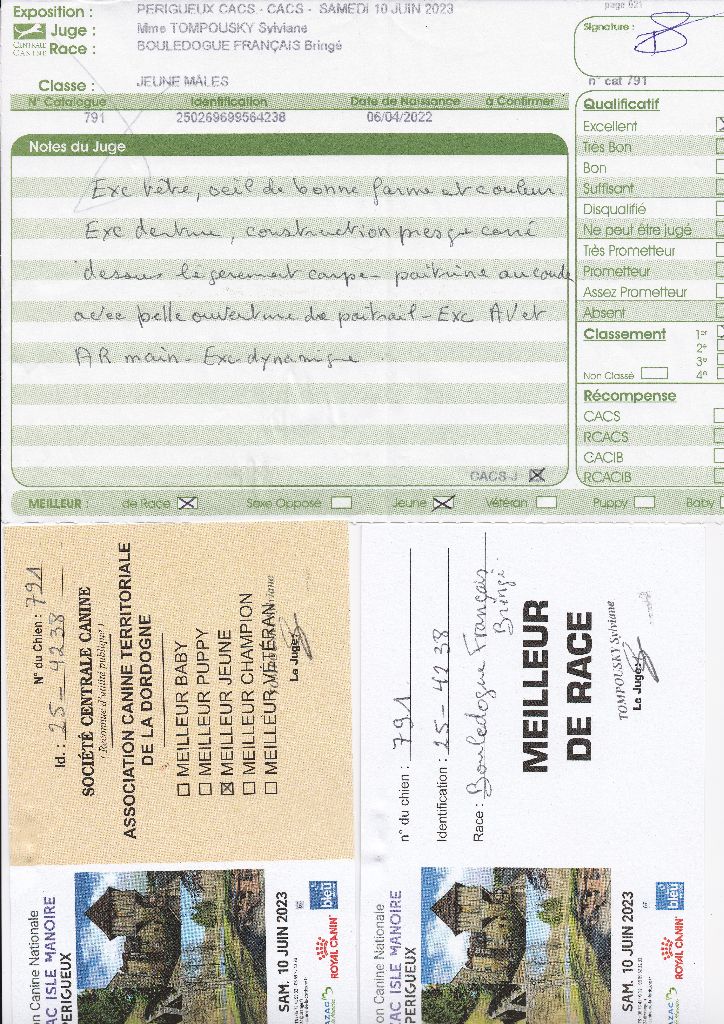 Exposition : PERIGUEUX CACS - CACS - SAMEDI 10 JUIN 2023
Juge : Mme TOMPOUSKY Sylviane
CENTRALE CANINE
Race : BOULEDOGUE FRANÇAIS Bringé
Classe : JEUNE MÂLES
N° Catalogue Identification Date de Naissance à Confirmer
791 250269699564238 06/04/2022
page 621
Signature :
n° cat 791
Notes du Juge
Exc tête, oeil de bonne forme et couleur
Exc denture, construction presque carré
dessus légèrement carpe - poitrine au coude
avec belle ouverture de poitrail - Exc AV et
AR main - Exc dynamique
CACS-J
Qualificatif
Excellent
Très Bon
Bon
Suffisant
Disqualifié
Ne peut être jugé
Très Prometteur
Prometteur
Assez Prometteur
Absent
Classement 1er
2e
3e
Non Classé 4e
Récompense
CACS
RCACS
CACIB
RCACIB
MEILLEUR : de Race Sexe Opposé Jeune Vétéran Puppy Baby
N° du Chien : 791
Id. : 25-4238
SOCIÉTÉ CENTRALE CANINE
(Reconnue d'utilité publique)
ASSOCIATION CANINE TERRITORIALE
DE LA DORDOGNE
MEILLEUR BABY
MEILLEUR PUPPY
MEILLEUR JEUNE
MEILLEUR CHAMPION
MEILLEUR VÉTÉRAN
Le Juge:
on Canine Nationale
ZAC ISLE MANOIRE
PERIGUEUX
SAM. 10 JUIN 2023
bleu
ROYAL CANIN
n° du chien : 791
Identification : 25-4238
Race : Bouledogue Français
Bringé
MEILLEUR
DE RACE
TOMPOUSKY Sylviane
Le Juge:
on Canine Nationale
ZAC ISLE MANOIRE
PERIGUEUX
SAM. 10 JUIN 2023
bleu
ROYAL CANIN